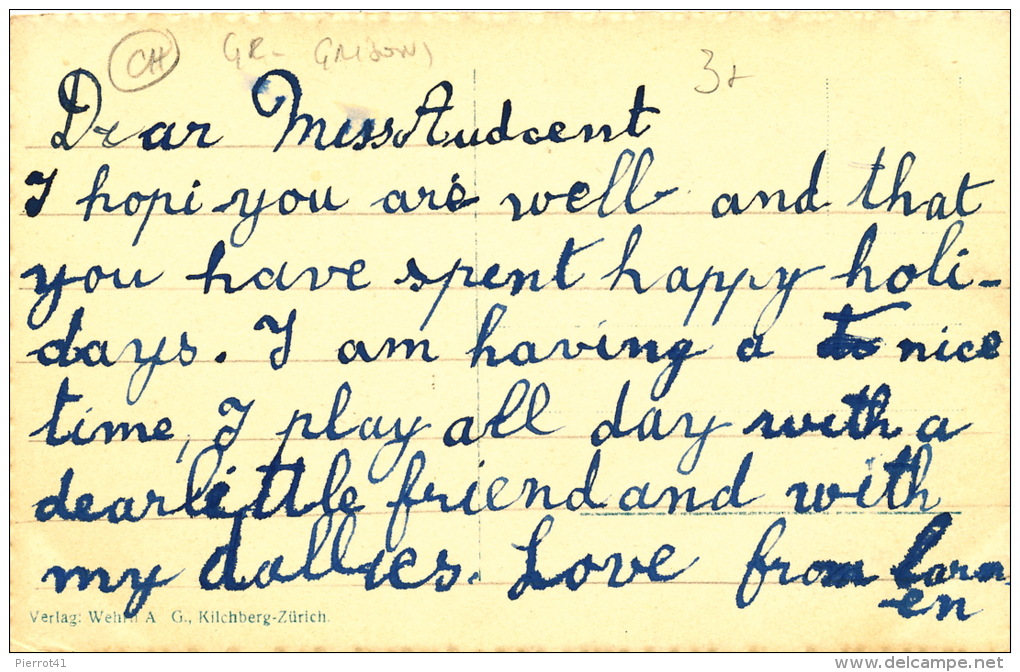 CH GR - GRISONS 3+
Dear Miss Audcent
I hopi you are well and that
you have spent happy holi-
days. I am having a to nice
time, I play all day with a
dear little friend and with
my dollies. Love from Carm
-en
Verlag: Wehrli A G., Kilchberg-Zürich.
Pierrot41
delcampe.net